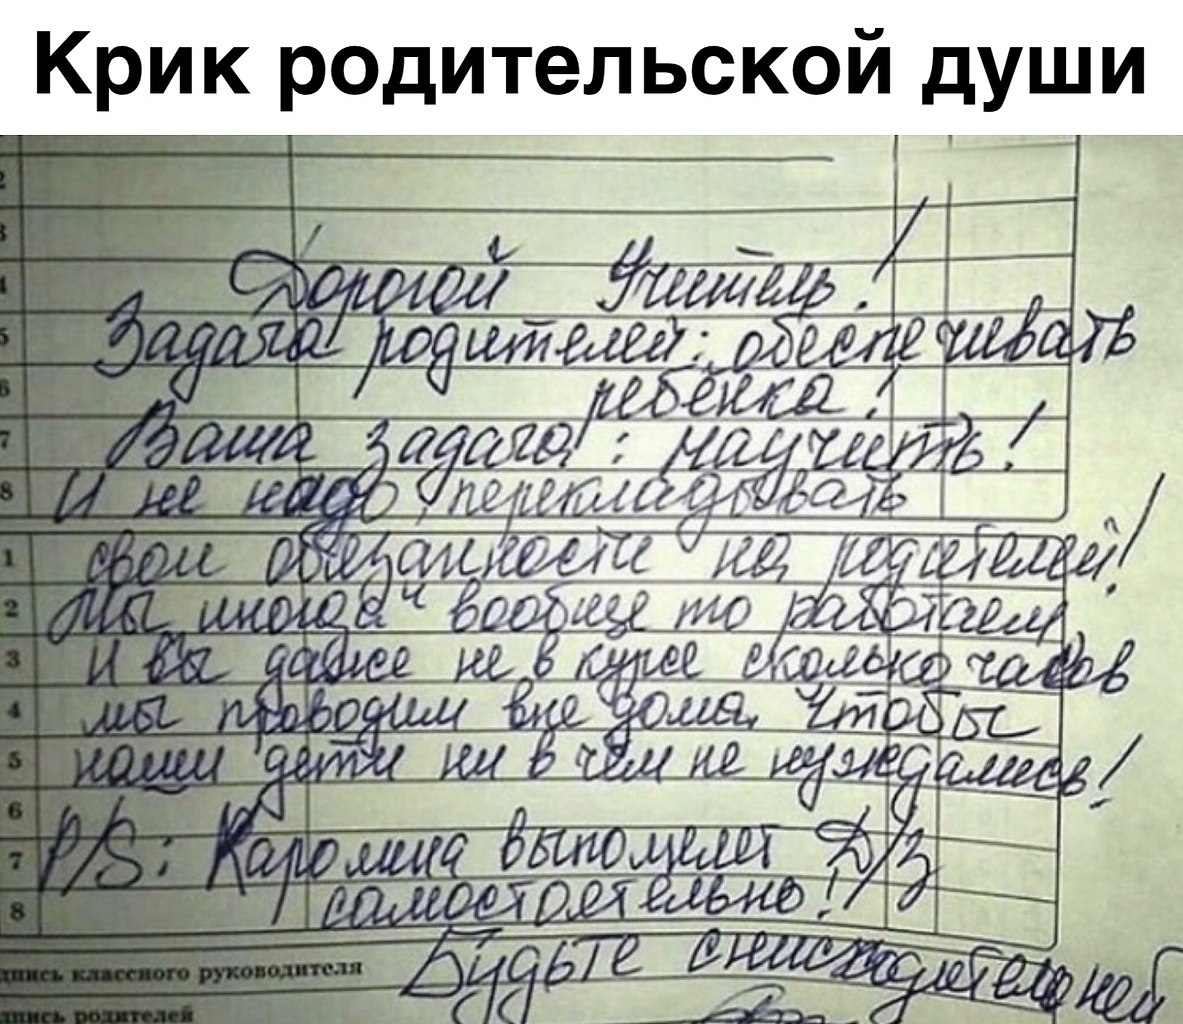 Крик родительской души
2
3
4
5
6
7
8
Дорогой Учитель!
Задача родителей: обеспечивать
ребёнка!
Ваша задача: научить!
И не надо перекладывать
1
2
3
4
5
6
7
8
свои обязанности на родителей!
Мы иногда вообще то работаем,
И вы даже не в курсе сколько часов
мы проводим вне дома, чтобы
наши дети ни в чём не нуждались!
P/S: Каролина выполняет Д/З
самостоятельно!
Будьте снисходительней
дпись классного руководителя
дпись родителей